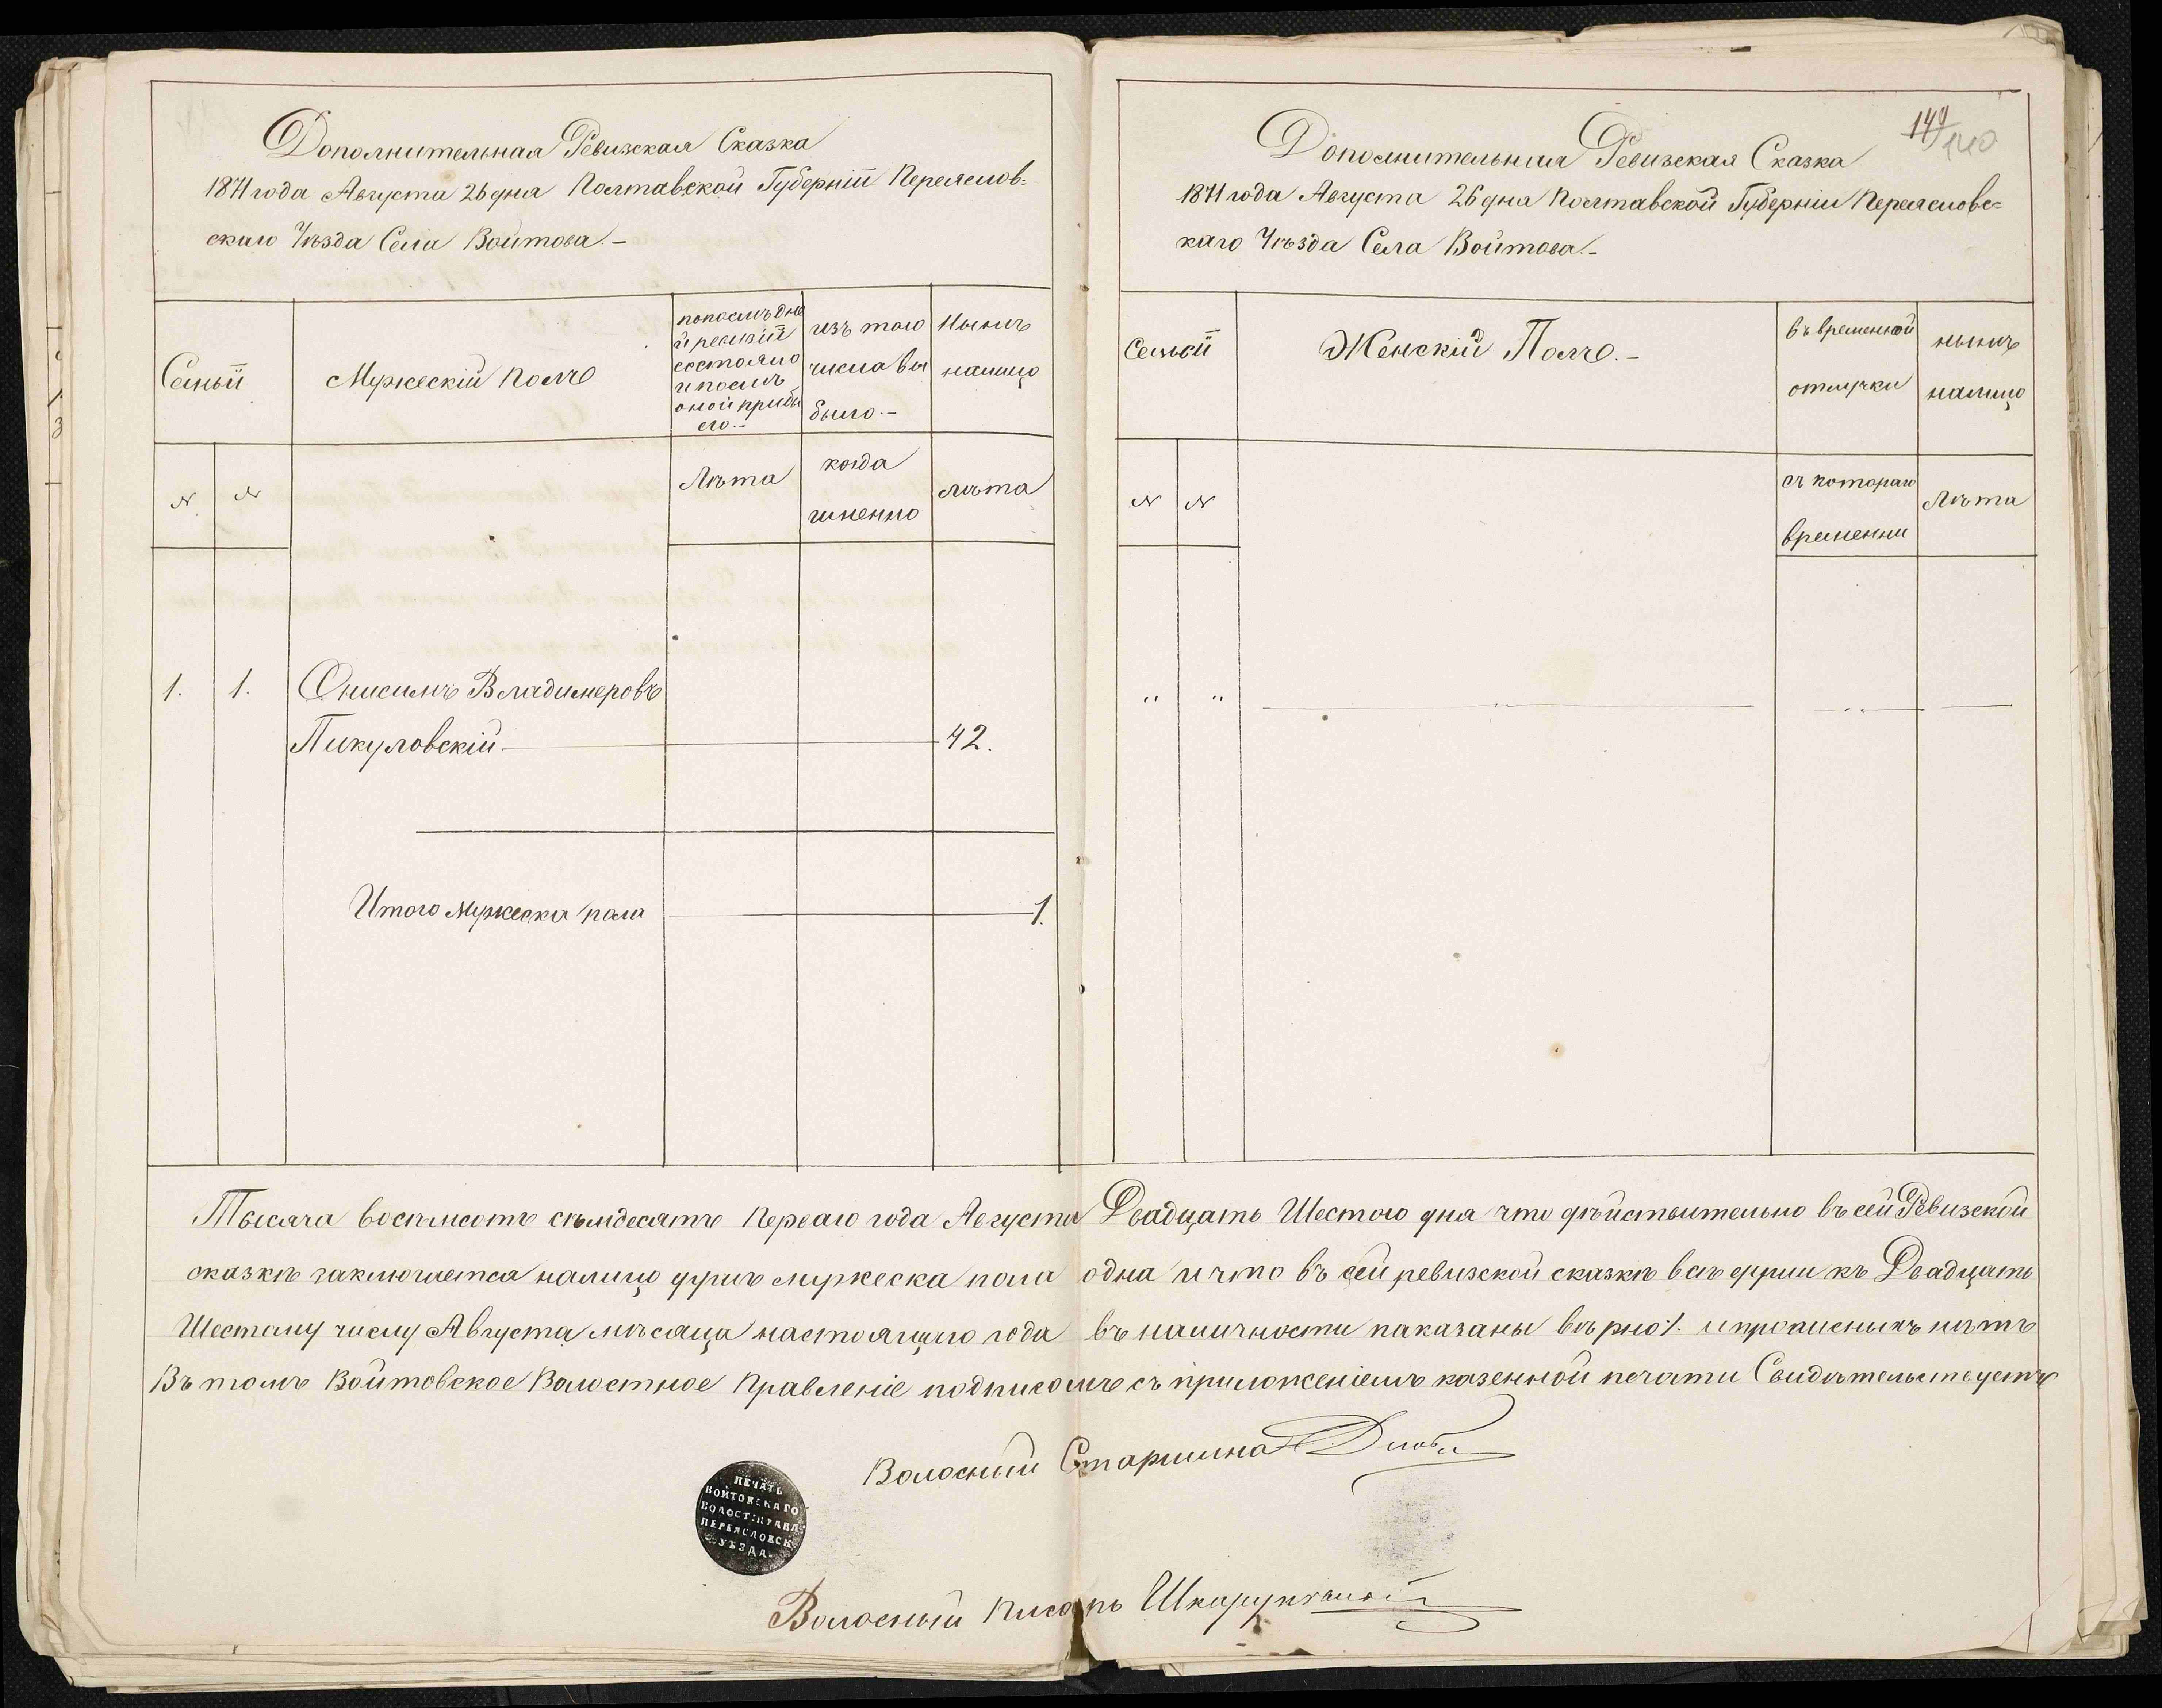 Дополнительная Ревизская Сказка
1871 года Августа 26 дня Полтавской Губерніи Переяслов-
скаго Уѣзда Села Войтова.-
Семьи
Мужескій полъ
по послѣдне
й ревизіи
состояло
и послѣ
оной прибы
ло.-
изъ того
числа вы
было.-
Нынѣ
налицо
№ №
Лѣта
когда
именно
лѣта
1. 1. Онисимъ Владимеровъ
Пикуловскій 42.
Итого мужеска пола 1.
149
140
Дополнительная Ревизская Сказка
1871 года Августа 26 дня Полтавской Губерніи Переясловс-
каго Уѣзда Села Войтова.-
Семьи
Женскій Полъ.-
въ временной
отлучки
нынѣ
налицо
№ №
съ котораго
временни
Лѣта
" " " "
Тысяча восемсотъ семдесятъ Перваго года Августа Двадцать Шестого дня что дѣйствительно въ сей Ревизской
сказкѣ заключается налицо душъ мужеска пола одна и что въ сей ревизской сказкѣ всѣ души къ Двадцать
Шестому числу Августа мѣсяца настоящаго года въ наличности показаны вѣрно и прописныхъ нѣтъ
Въ томъ Войтовское Волостное Правленіе подписомъ съ приложеніемъ казенной печати Свидѣтельствуетъ
Волосный Старшина
ПЕЧАТЬ
ВОЙТОВСКАГО
ВОЛОСТ: ПРАВЛ:
ПЕРЕЯСЛОВСК:
УѢЗДА.
Волосный Писарь